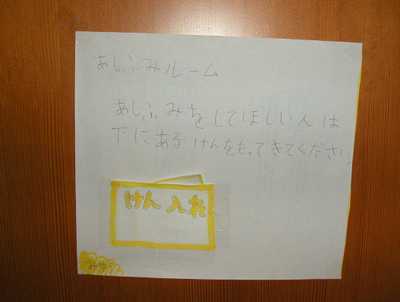 あしふみルーム
あしふみをしてほしい人は
下にあるけんをもってきてください
けん入れ